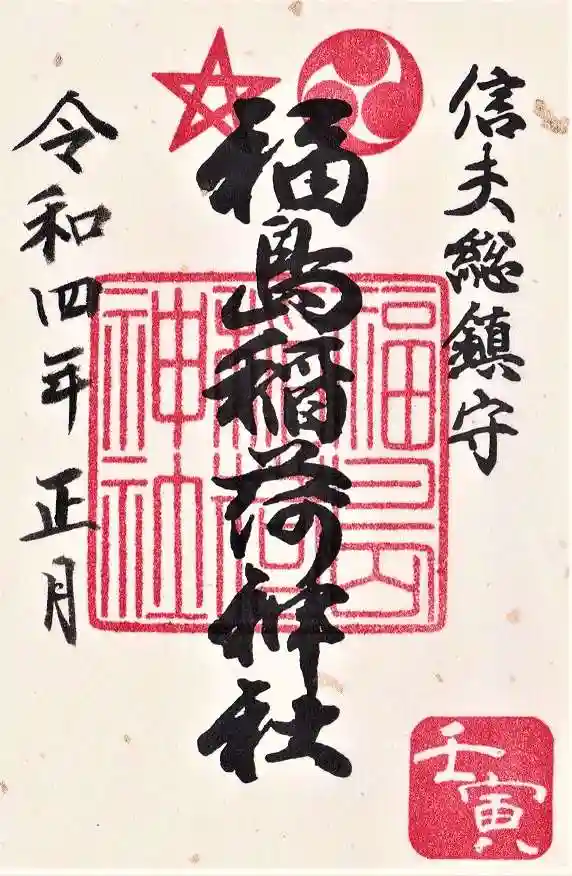 信夫総鎮守
福島稲荷神社
福島稲荷神社
令和四年 正月
壬寅